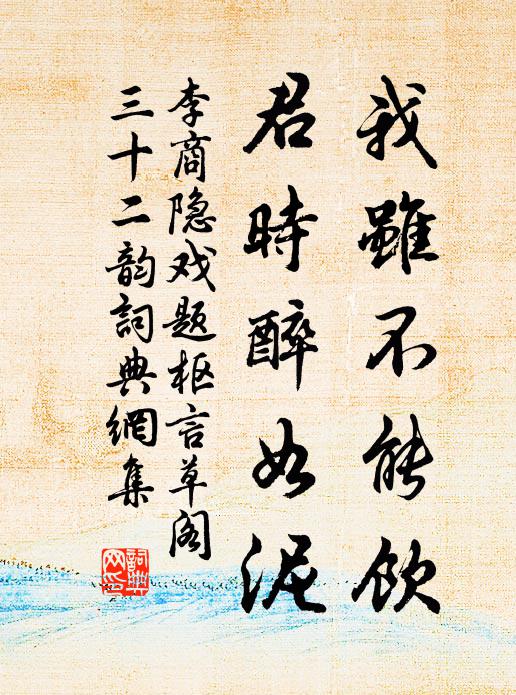 我雖不能飲
君時醉如泥
李商隐戏题枢言草阁
三十二韵詞典網集